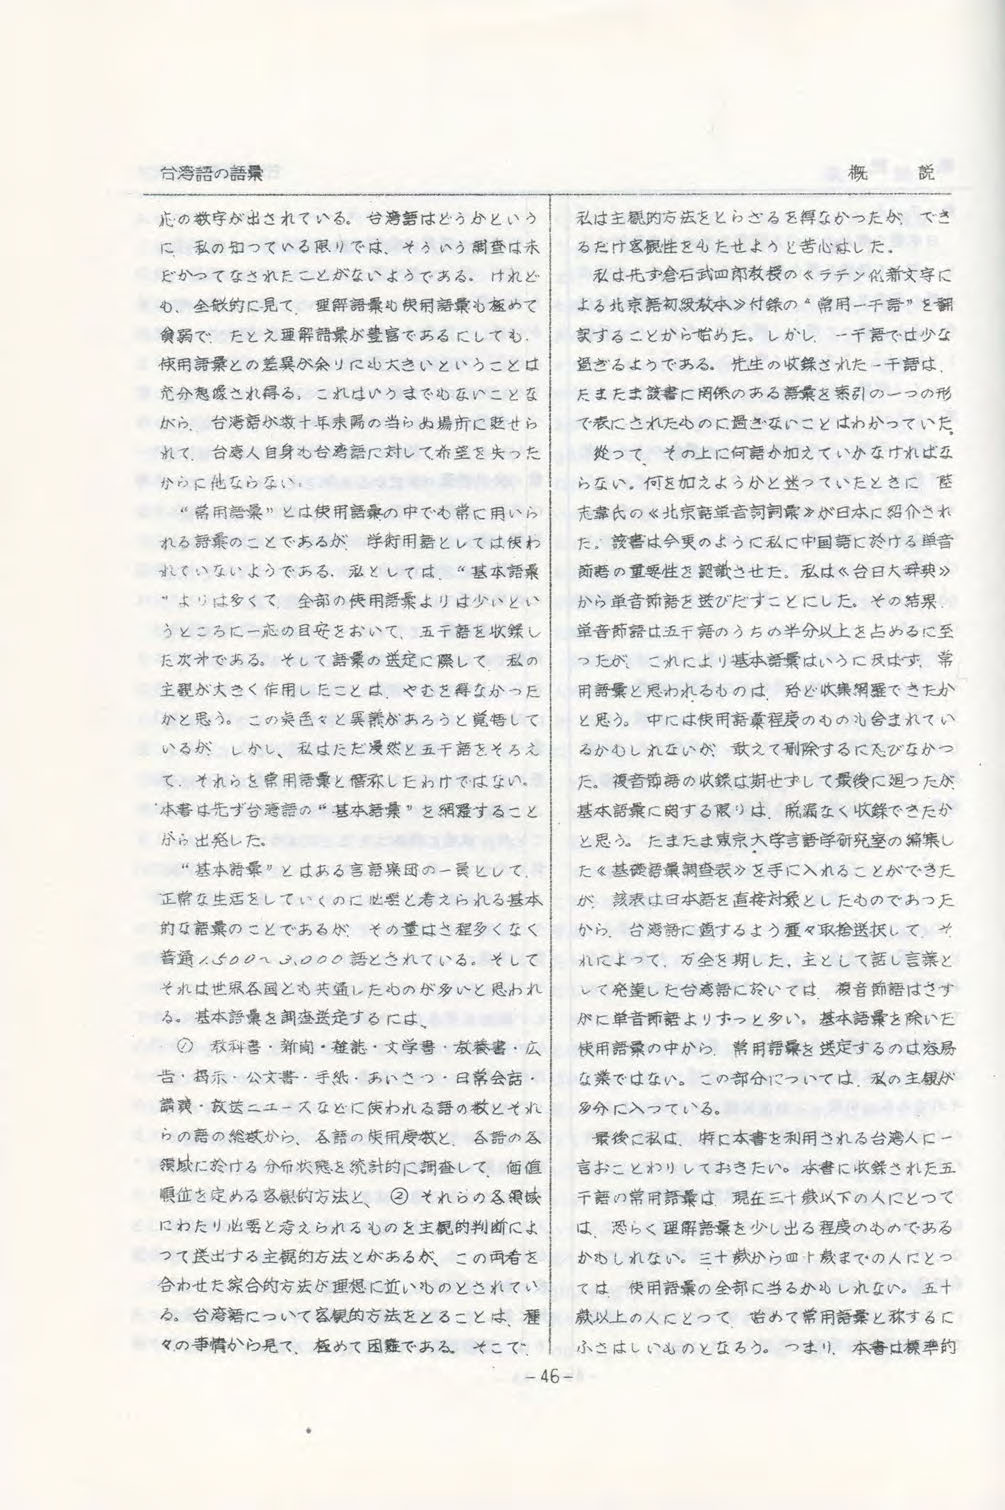 台湾語の語彙
概 説
応の数字が出されている。台湾語はどうかという
に、私の知っている限りでは、そういう調査は未
だかつてなされたことがないようである。けれど
も、全般的に見て、理解語彙も使用語彙も極めて
貧弱で、たとえ理解語彙が豊富であるにしても、
使用語彙との差異が余りにも大きいということは
充分想像され得る。これはいうまでもないことな
がら、台湾語が数十年来陽の当らぬ場所に置せら
れて、台湾人自身も台湾語に対して希望を失った
からに他ならない。
“常用語彙”とは使用語彙の中でも常に用いら
れる語彙のことであるが、学術用語としては使わ
れていないようである。私としては、“基本語彙
”よりは多くて、全部の使用語彙よりは少いとい
うところに一応の目安をおいて、五千語を収録し
た次第である。そして語彙の送定に際して、私の
主観が大きく作用したことは、やむを得なかった
かと思う。この点色々と異議があろうと覚悟して
いるが、しかし、私はただ漫然と五千語をそろえ
て、それらを常用語彙と僭称したわけではない。
本書は先ず台湾語の“基本語彙”を網羅すること
から出発した。
“基本語彙”とはある言語集団の一員として、
正常な生活をしていくのに必要と考えられる基本
的な語彙のことであるが、その量はさ程多くなく
普通1.500〜3.000語とされている。そして
それは世界各国とも共通したものが多いと思われ
る。基本語彙を調査送定するには、
① 教科書・新聞・雑誌・文学書・教養書・広
告・掲示・公文書・手紙・あいさつ・日常会話・
講演・放送ニュースなどに使われる語の数とそれ
らの語の総数から、各語の使用度数と、各語の各
領域に於ける分布状態を統計的に調査して、価値
順位を定める客観的方法と、②それらの各領域
にわたり必要と考えられるものを主観的判断によ
つて送出する主観的方法とがあるが、この両者を
合わせた綜合的方法が理想に近いものとされてい
る。台湾語について客観的方法をとることは、種
々の事情から見て、極めて困難である。そこで、
私は主観的方法をとらざるを得なかったが、でき
るだけ客観性をもたせようと苦心はした。
私は先ず倉石武四郎教授の≪ラテン化新文字に
よる北京語初級教本≫付録の“常用一千語”を翻
訳することから始めた。しかし、一千語では少な
過ぎるようである。先生の収録された一千語は、
たまたま該書に関係のある語彙を索引の一つの形
で表にされたものに過ぎないことはわかっていた。
従って、その上に何語か加えていかなければな
らない。何を加えようかと迷っていたときに、陸
志韋氏の≪北京話単音詞詞彙≫が日本に紹介され
た。該書は今更のように私に中国語に於ける単音
節語の重要性を認識させた。私は≪台日大辞典≫
から単音節語を送びだすことにした。その結果、
単音節語は五千語のうちの半分以上を占めるに至
つたが、これにより基本語彙はいうに及ばず、常
用語彙と思われるものは、殆ど収集網羅できたか
と思う。中には使用語彙程度のものも含まれてい
るかもしれないが、敢えて削除するに及びなかつ
た。複音節語の収録は期せずして最後に廻ったが
基本語彙に関する限りは、脱漏なく収録できたか
と思う。たまたま東京大学言語学研究室の編集し
た≪基礎語彙調査表≫を手に入れることができた
が、該表は日本語を直接対象としたものであった
から、台湾語に適するよう種々取捨送択して、そ
れによって、万全を期した。主として話し言葉と
して発達した台湾語に於いては、複音節語はさす
がに単音節語よりずっと多い。基本語彙を除いた
使用語彙の中から、常用語彙を送定するのは容易
な業ではない。この部分については、私の主観が
多分に入つている。
最後に私は、特に本書を利用される台湾人に一
言おことわりしておきたい。本書に収録された五
千語の常用語彙は、現在三十歳以下の人にとつて
は、恐らく理解語彙を少し出る程度のものである
かもしれない。三十歳から四十歳までの人にとっ
ては、使用語彙の全部に当るかもしれない。五十
歳以上の人にとつて、始めて常用語彙と称するに
ふさはしいものとなろう。つまり、本書は標準的
-46-